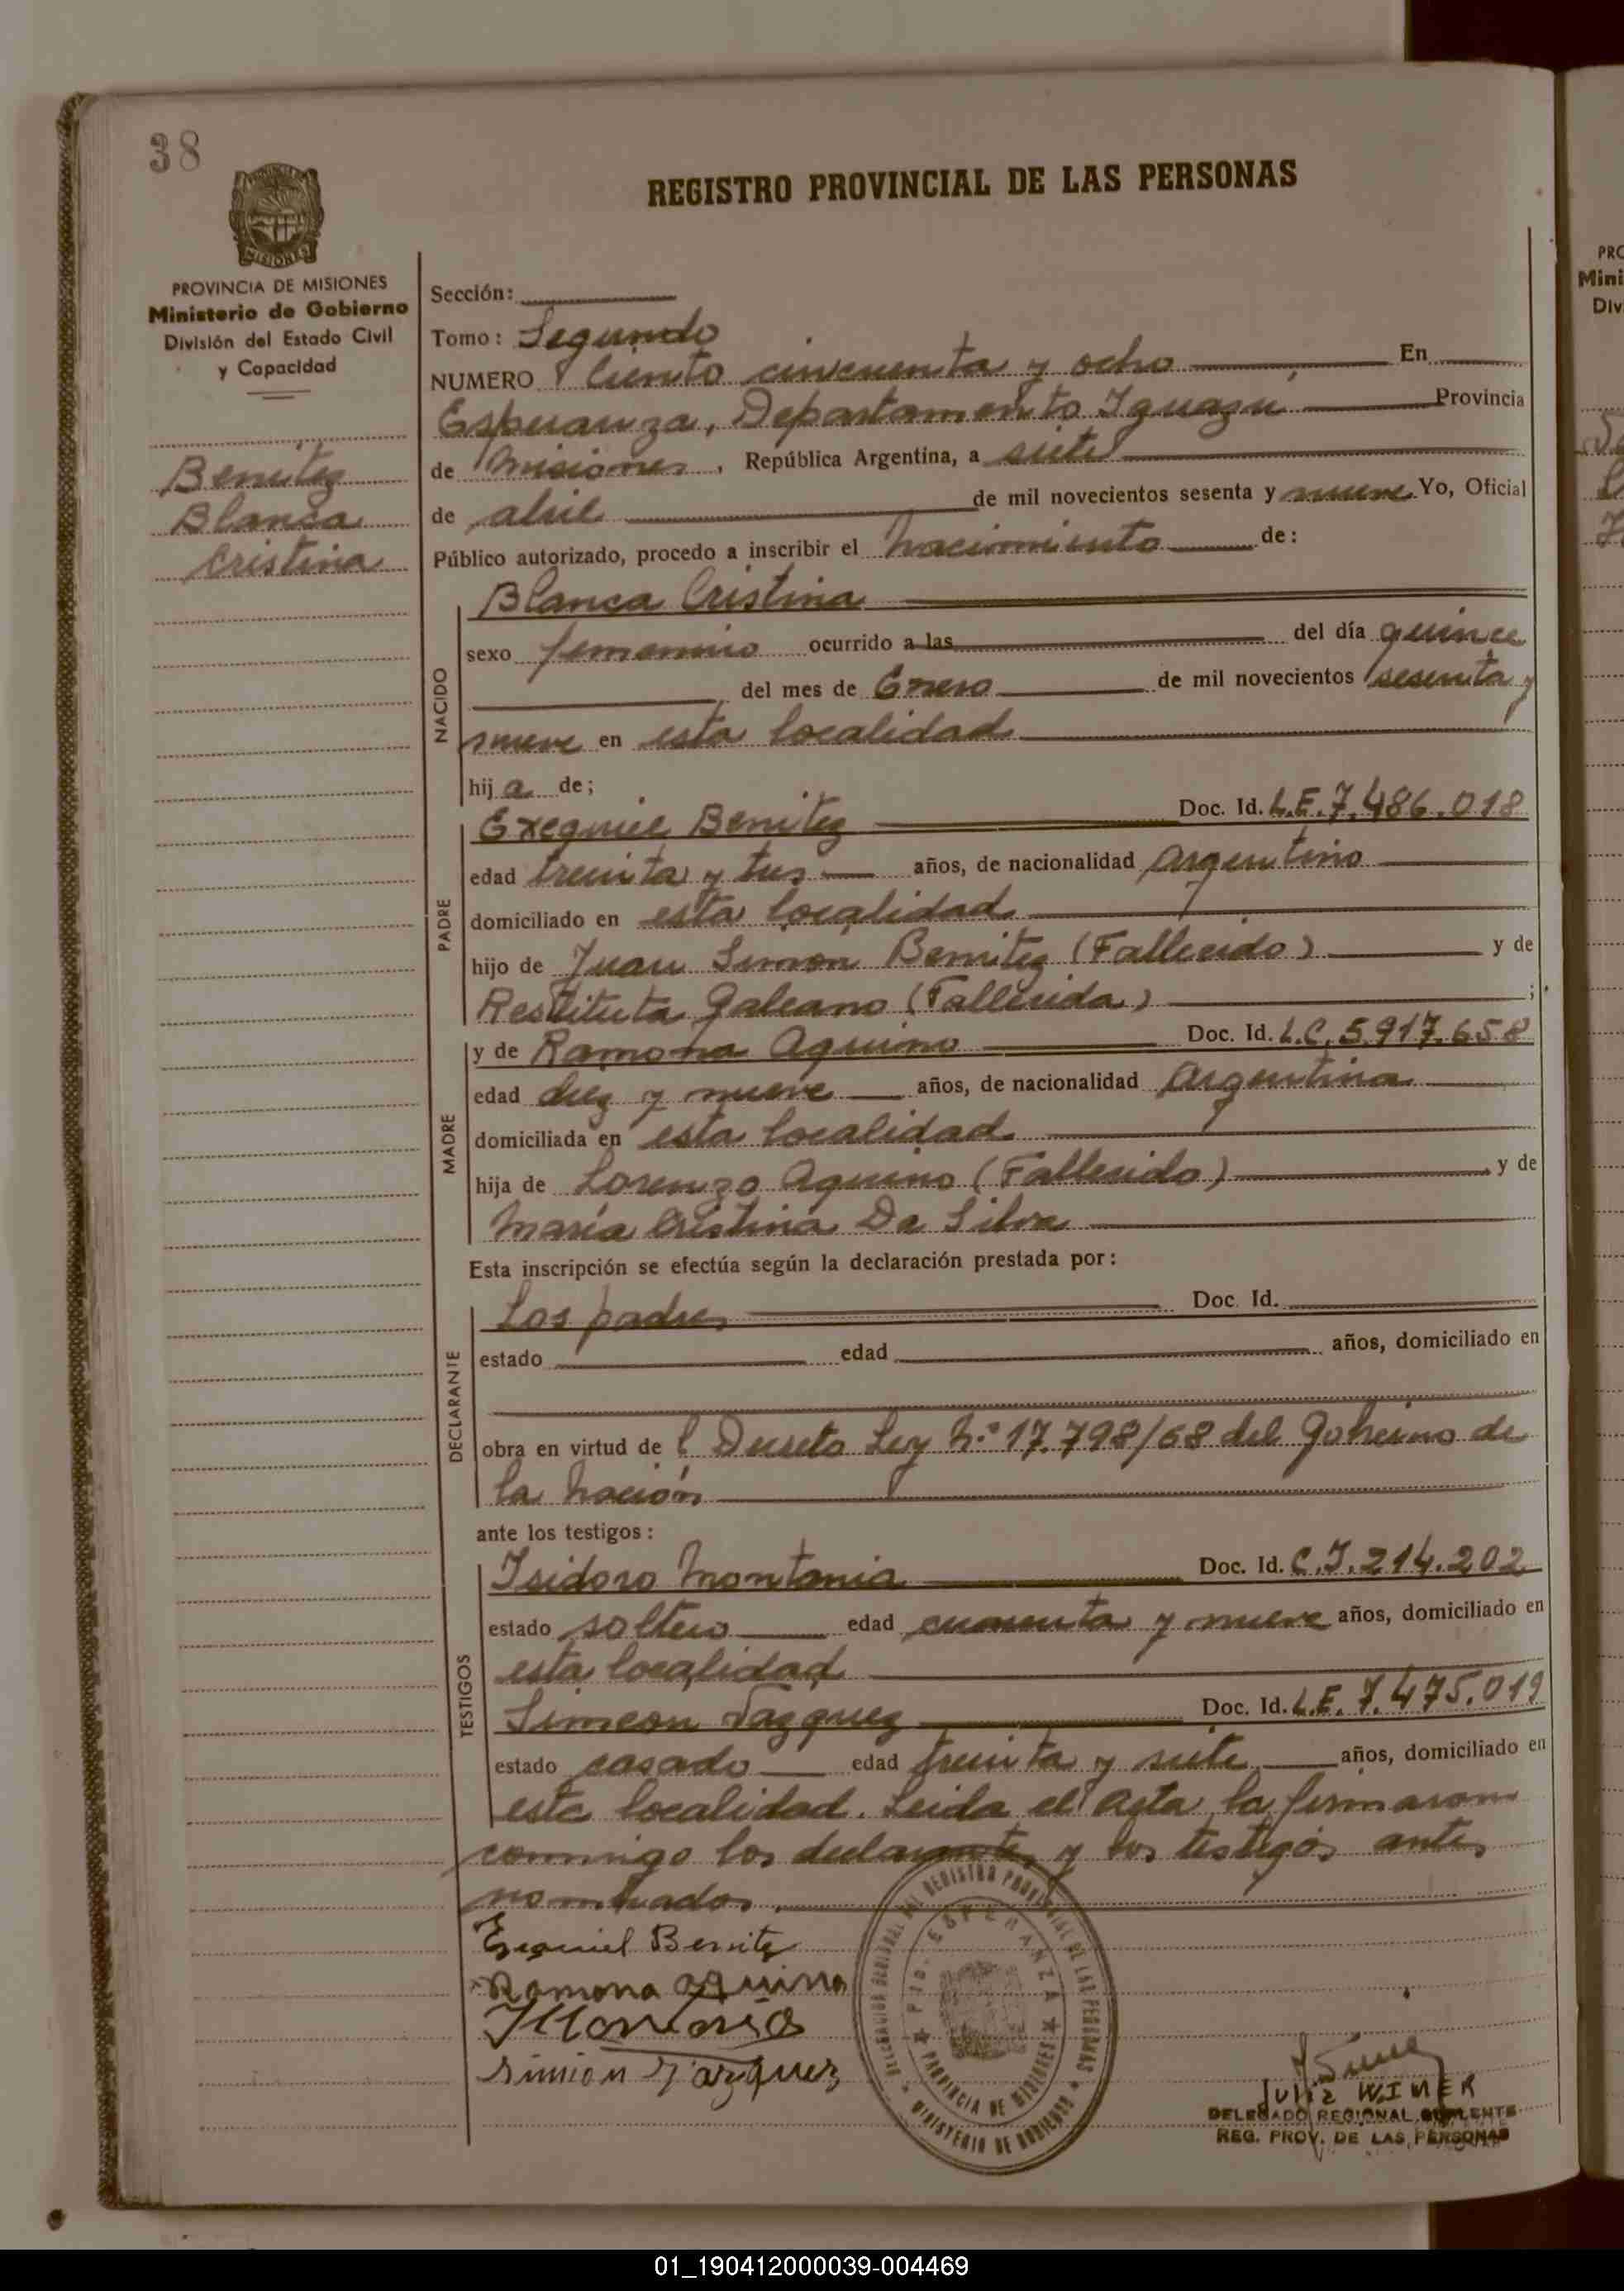 38
MISIONES
PROVINCIA DE MISIONES
Ministerio de Gobierno
División del Estado Civil
y Capacidad
Benitez
Blanca
Cristina
REGISTRO PROVINCIAL DE LAS PERSONAS
Sección:
Tomo: Segundo
NUMERO Ciento cincuenta y ocho En
Esperanza, Departamento Iguazu, Provincia
de Misiones, República Argentina, a siete
de abril de mil novecientos sesenta y nueve Yo, Oficial
Público autorizado, procedo a inscribir el nacimiento de:
NACIDO
Blanca Cristina
sexo femenino ocurrido a las del día quince
del mes de Enero de mil novecientos sesenta y
nueve en esta localidad
hij a de;
PADRE
Exequiel Benitez Doc. Id. L.E. 7.486.018
edad treinta y tres años, de nacionalidad argentino
domiciliado en esta localidad
hijo de Juan Simón Benitez (Fallecido) y de
Restituta Galeano (Fallecida) ;
MADRE
y de Ramona Aquino Doc. Id. L.C. 5.917.658
edad diez y nueve años, de nacionalidad Argentina
domiciliada en esta localidad
hija de Lorenzo Aquino (Fallecido) y de
María Cristina Da Silva
Esta inscripción se efectúa según la declaración prestada por:
DECLARANTE
Los padres Doc. Id.
estado edad años, domiciliado en
obra en virtud de l Decreto Ley N.° 17.798/68 del Gobierno de
la Nación
ante los testigos:
TESTIGOS
Isidoro Montania Doc. Id. C.I. 214.202
estado soltero edad cuarenta y nueve años, domiciliado en
esta localidad
Simeon Vazquez Doc. Id. L.E. 7.475.019
estado casado edad treinta y siete años, domiciliado en
esta localidad. Leida el Acta la firmaron
conmigo los declarantes y los testigos antes
nombrados.
Exequiel Benitez
Ramona Aquino
IMontania
Simion Vazquez
DELEGACION REGIONAL DEL REGISTRO PROVINCIAL DE LAS PERSONAS
ESPERANZA
PROVINCIA DE MISIONES
MINISTERIO DE GOBIERNO
WINER
DELEGADO REGIONAL SUPLENTE
REG. PROV. DE LAS PERSONAS
PRO
Mini
Div
01_190412000039-004469